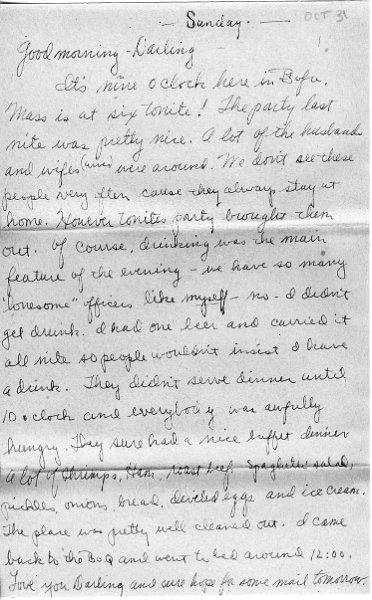 - Sunday. -
OCT 31
Good morning - Darling
It's nine o'clock here in Bofu.
Mass is at six tonite! The party last
nite was pretty nice. A lot of the husbands
and wifes (wives) were around. We don't see these
people very often cause they always stay at
home. However tonites party brought them
out. Of course, drinking was the main
feature of the evening - we have so many
"lonesome" officers like myself - no - I didn't
get drunk. I had one beer and carried it
all nite so people wouldn't insist I have
a drink. They didn't serve dinner until
10 o clock and everybody was awfully
hungry. They sure had a nice buffet dinner
A lot of Shrimps, Ham, roast beef, Spaghetti salad,
pickles, onions, bread, deviled eggs and ice cream.
The place was pretty well cleaned out. I came
back to the BoQ and went to bed around 12:00.
Love you Darling and sure hope for some mail tomorrow.